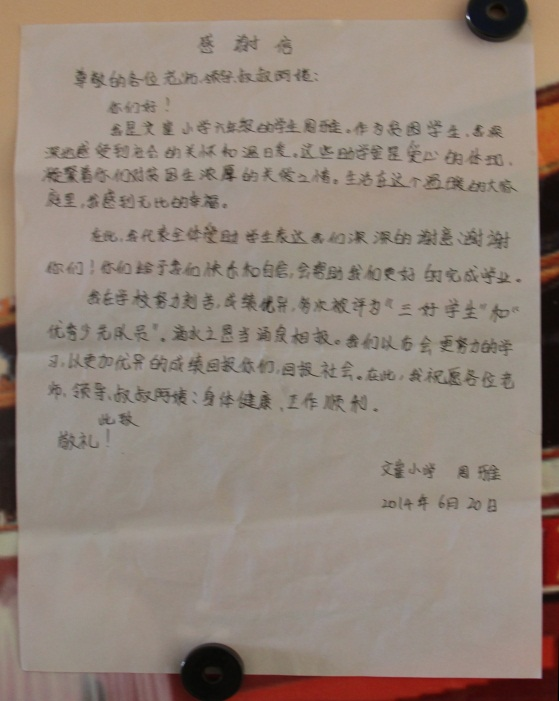 感谢信
尊敬的各位老师、领导、叔叔阿姨：
你们好！
我是文星小学六年级的学生周雅。作为贫困学生，我深
深地感受到社会的关怀和温暖。这些助学金是爱心的体现，
凝聚着你们对贫困生浓厚的关爱之情。生活在这个温暖的大家
庭里，我感到无比的幸福。
在此，我代表全体受助学生表达我们深深的谢意：谢谢
你们！你们给予我们快乐和自信，会帮助我们更好的完成学业。
我在学校努力刻苦，成绩优异，多次被评为“三好学生”和“
优秀少先队员”。滴水之恩当涌泉相报。我们以后会更努力的学
习，以更加优异的成绩回报你们，回报社会。在此，我祝愿各位老
师、领导、叔叔阿姨：身体健康、工作顺利。
此致
敬礼！
小学 周
2014年6月20日